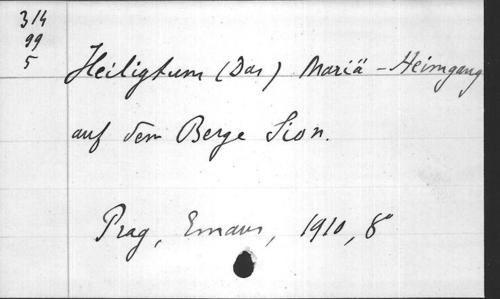 314
99
5
Heiligtum (Das) Mariä-Heimgang
auf dem Berge Sion.
Prag, Emaus, 1910, 8°